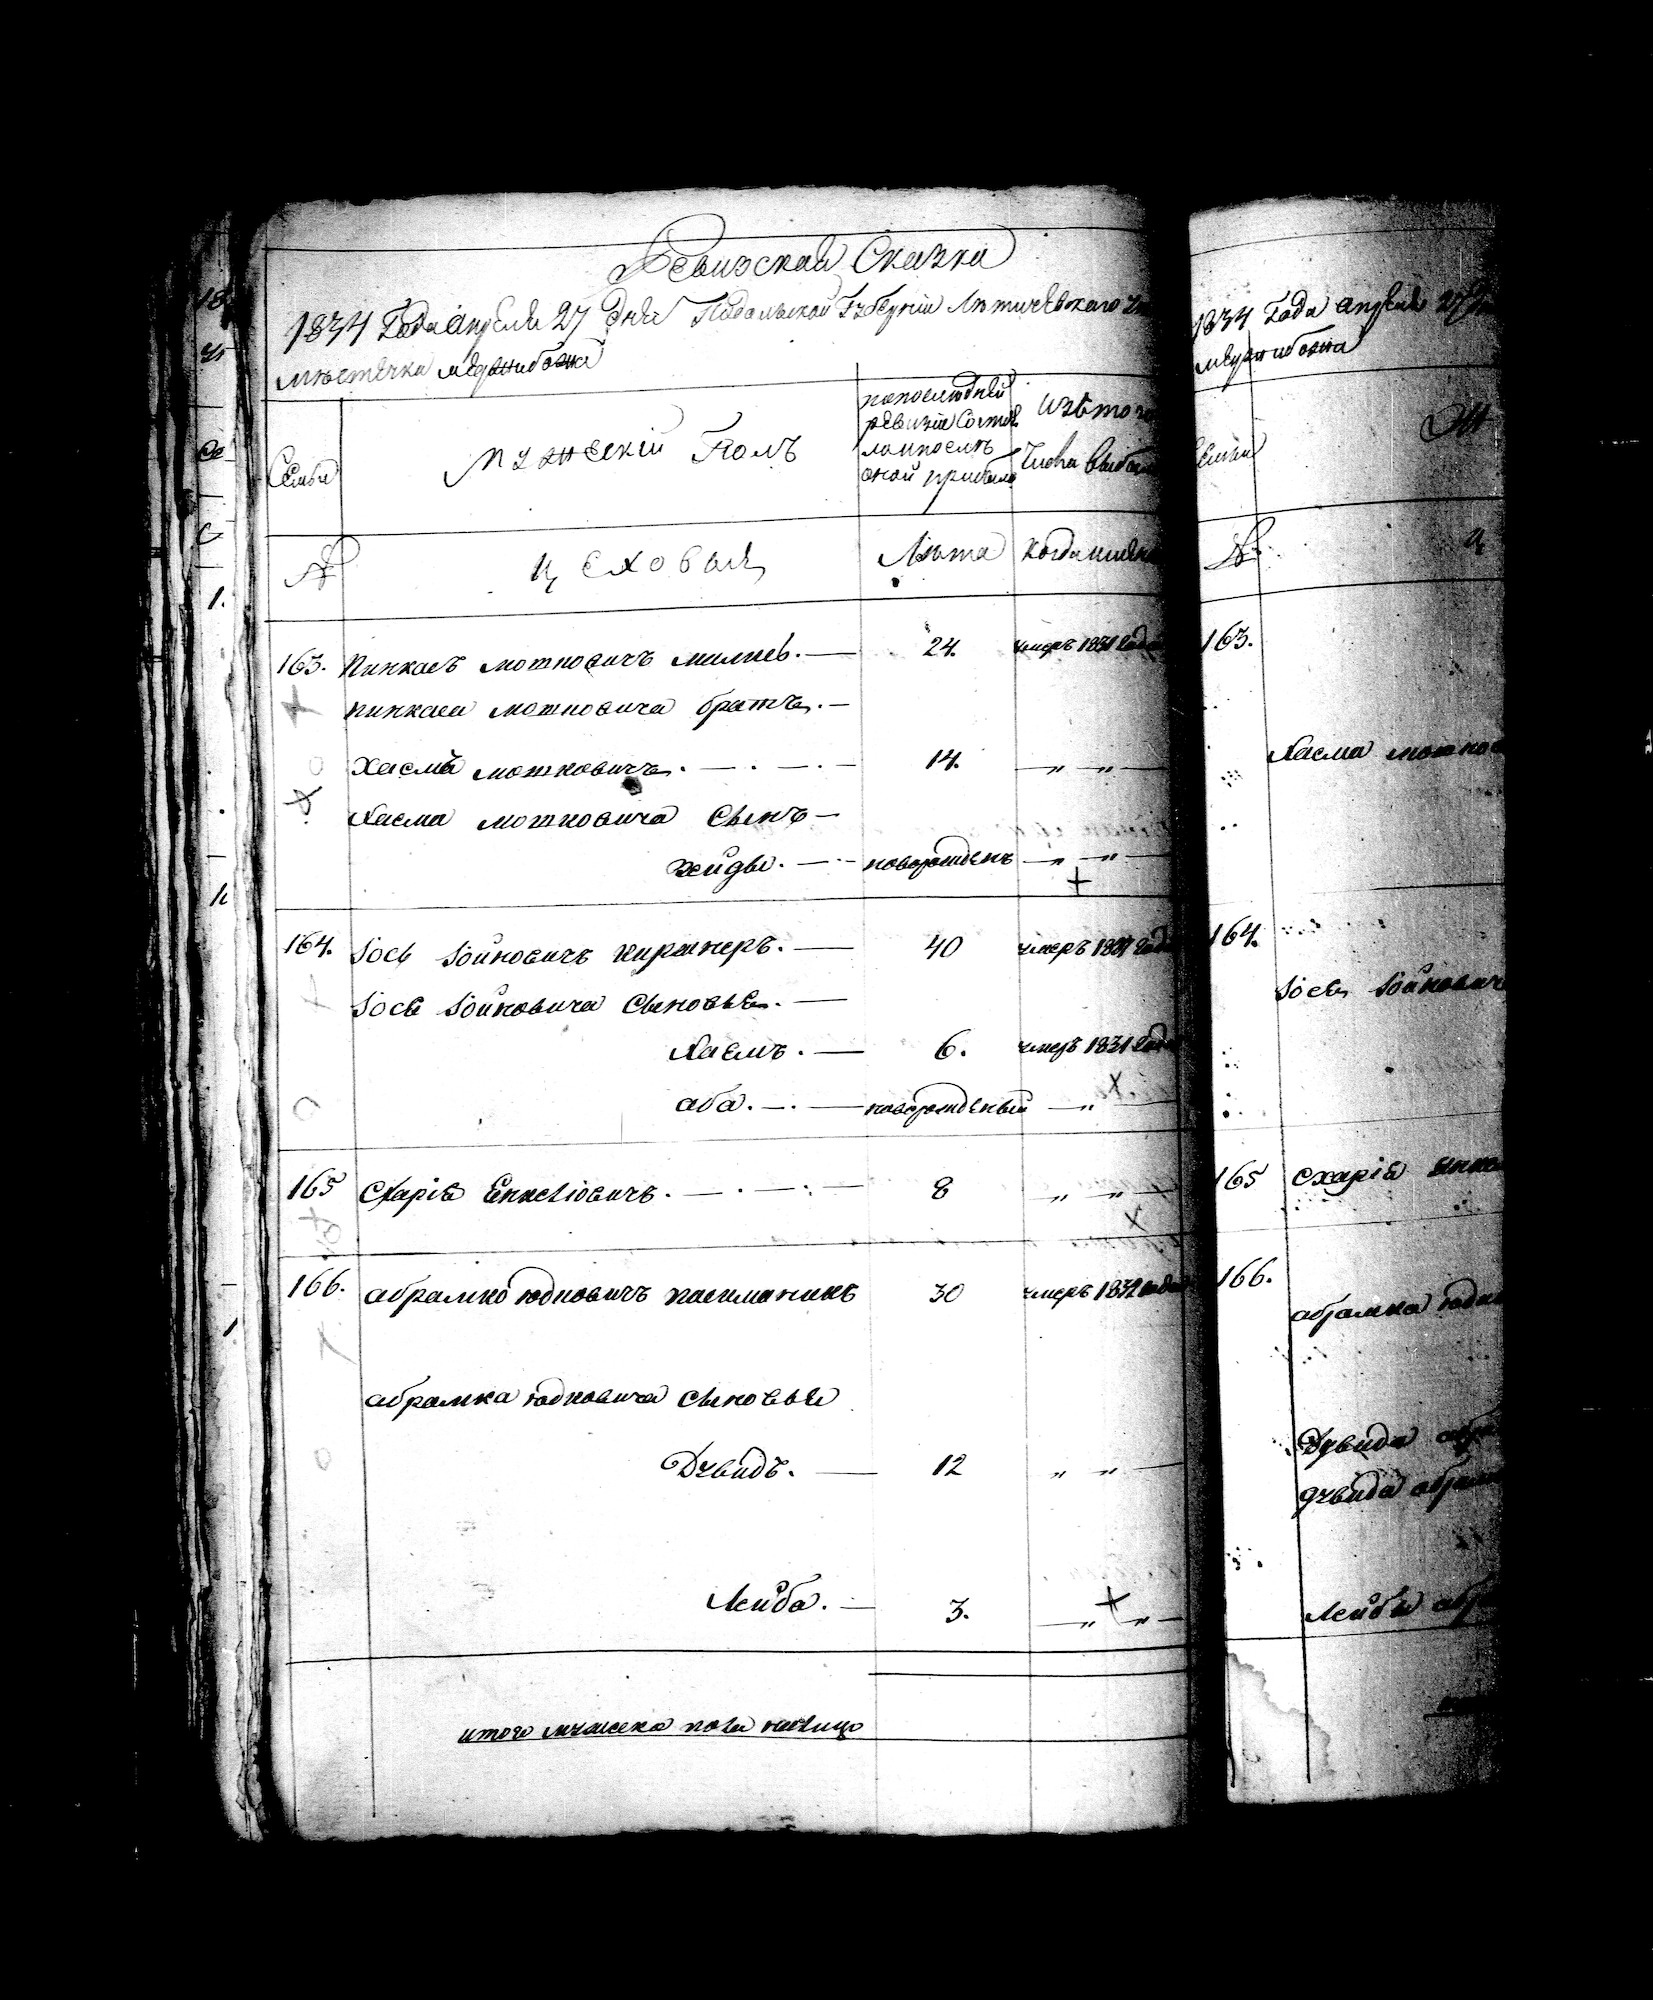 Ревизская Сказка
1834 Года апреля 27 Дня Подольской Губернiи Лѣтичевскаго
мѣстечка меджибожа
Семьи
мужескiй Полъ
по последней
ревизiи Состоя
ло и после
оной прибыло
Изъ того
Числа выбыло
№
цеховые
Лѣта
Когда имянно
163. Пинкасъ мотковичъ 24. умеръ 1831 года
пинкаса мотковича братъ. —
Хаємъ мотковичъ. — . — . — 14. — „ „ —
Хаєма мотковича Сынъ —
новорожденъ — „ „ —
164. Iось Iойновичъ 40 умеръ 1831 года
Iося Iойновича Сыновья. —
Хаємъ. — 6. умеръ 1831 года
аба. — . — новорожденый — „
165 Схарiя — . — . — 8 „ „ —
166. абрамко юдковичъ 30 умеръ 1832 года
абрамка юдковича сыновья
Дувидъ. — 12 „ „ —
Лейба. — 3. — „ „ —
итого мужеска пола налицо
1834 Года апреля 27
меджибожа
Семьи
№
163.
Хаєма мотков
164.
Iося Iойнович
165 Схарiя
166.
абрамка юдк
Дувида абр
дувида абрам
Лейбы абр